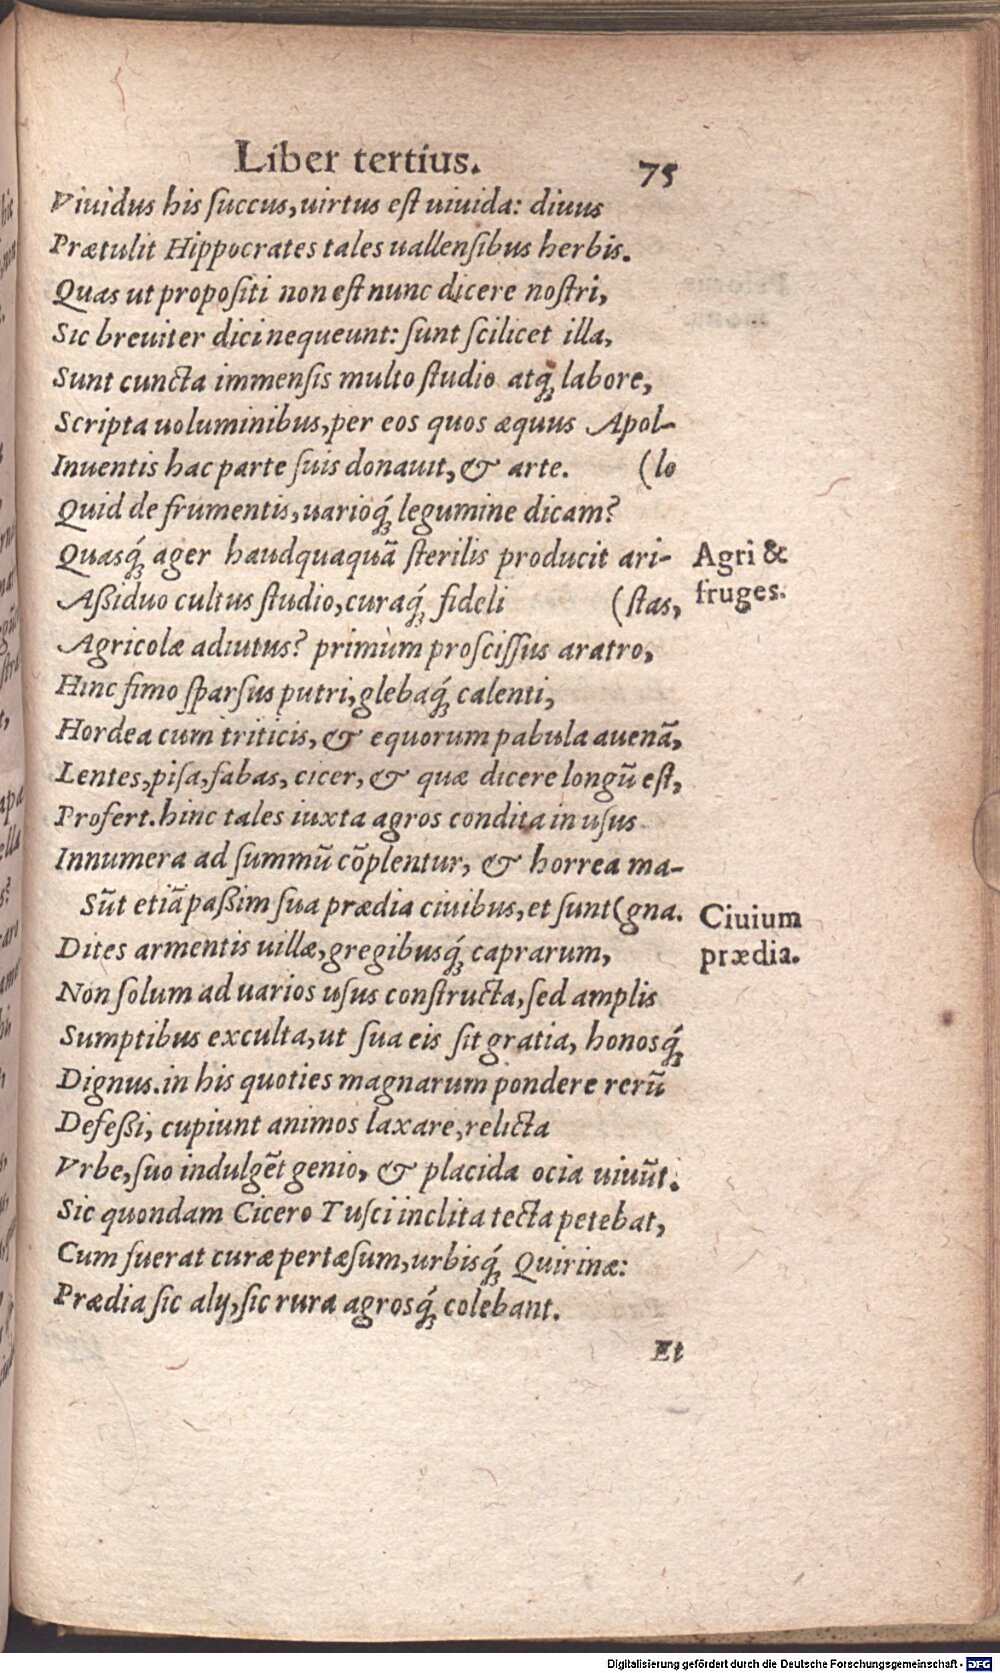 Liber tertius. 75
Viuidus his ſuccus, uirtus eſt uiuida: diuus
Prætulit Hippocrates tales uallenſibus herbis.
Quas ut propoſiti non eſt nunc dicere noſtri,
Sic breuiter dici nequeunt: ſunt ſcilicet illa,
Sunt cuncta immenſis multo ſtudio atq́ꝫ labore,
Scripta uoluminibus, per eos quos æquus Apol-
Inuentis hac parte ſuis donauit, & arte. (lo
Quid de frumentis, uarioq́ꝫ legumine dicam?
Quasq́ꝫ ager haudquaquã ſterilis producit ari-
Aßiduo cultus ſtudio, curaq́ꝫ fideli (ſtas,
Agri &
fruges.
Agricolæ adiutus? primùm proſciſſus aratro,
Hinc fimo ſparſus putri, glebaq́ꝫ calenti,
Hordea cum triticis, & equorum pabula auenã,
Lentes, piſa, fabas, cicer, & quæ dicere longũ eſt,
Profert. hinc tales iuxta agros condita in uſus
Innumera ad ſummũ cõplentur, & horrea ma-
Sũt etiã paßim ſua prædia ciuibus, et ſunt (gna.
Ciuium
prædia.
Dites armentis uillæ, gregibusq́ꝫ caprarum,
Non ſolum ad uarios uſus conſtructa, ſed amplis
Sumptibus exculta, ut ſua eis ſit gratia, honosq́ꝫ
Dignus. in his quoties magnarum pondere rerũ
Defeßi, cupiunt animos laxare, relicta
Vrbe, ſuo indulgẽt genio, & placida ocia uiuũt.
Sic quondam Cicero Tuſci inclita tecta petebat,
Cum fuerat curæ pertæſum, urbisq́ꝫ Quirinæ:
Prædia ſic alij, ſic rura agrosq́ꝫ colebant.
Et
Digitalisierung gefördert durch die Deutsche Forschungsgemeinschaft - DFG